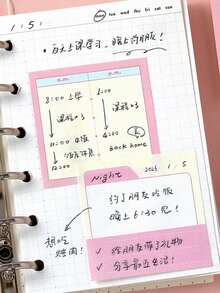 mon tue wed thu fri sat sun
1 : 5 :
· 白天上课学习，晚上约朋友！
a.m. p.m.
8:00 上学
课程 × 3
11:00
12:00
1:00
课程 × 3
4:00
back home
Night 2023 1 5
约了朋友吃饭
晚上 6:30 见！
想吃
烤肉！
✓ 给朋友带了礼物
✓ 分享最近